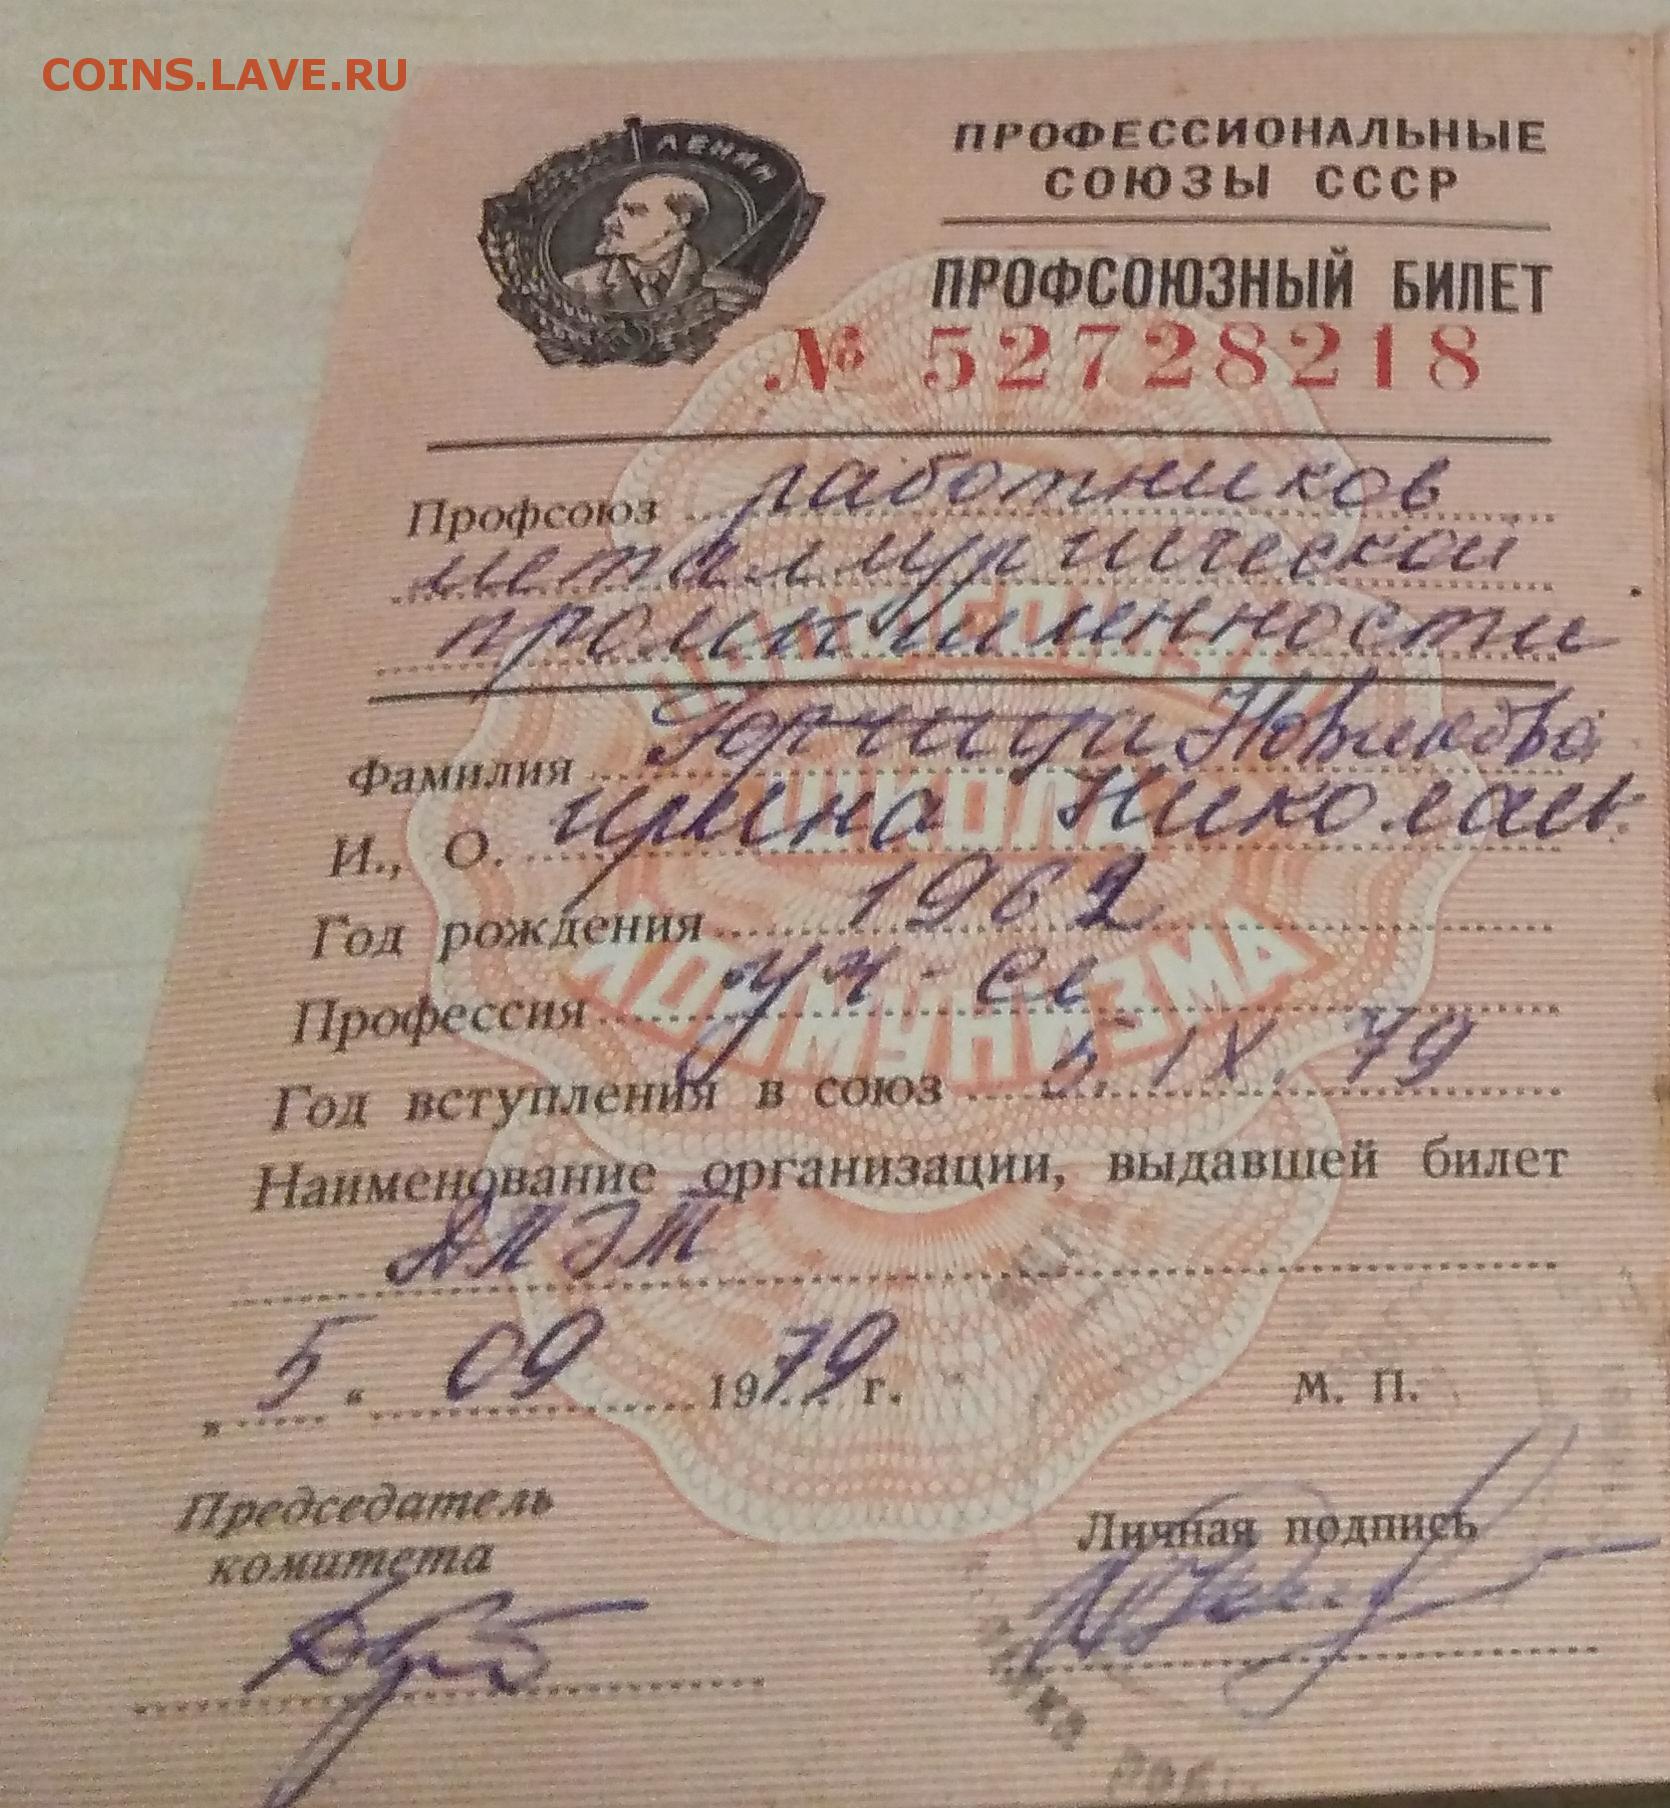 COINS.LAVE.RU
ЛЕНИН
ПРОФЕССИОНАЛЬНЫЕ
СОЮЗЫ СССР
ПРОФСОЮЗНЫЙ БИЛЕТ
№ 52728218
Профсоюз работников
металлургической
промышленности
Фамилия
И., О. Ирина Николаев
Год рождения 1962
ШКОЛА
КОММУНИЗМА
Профессия уч-ся
Год вступления в союз 5. IX. 79
Наименование организации, выдавшей билет
ДПЭТ
„5“ 09 1979 г. М. П.
Председатель
комитета
Личная подпись